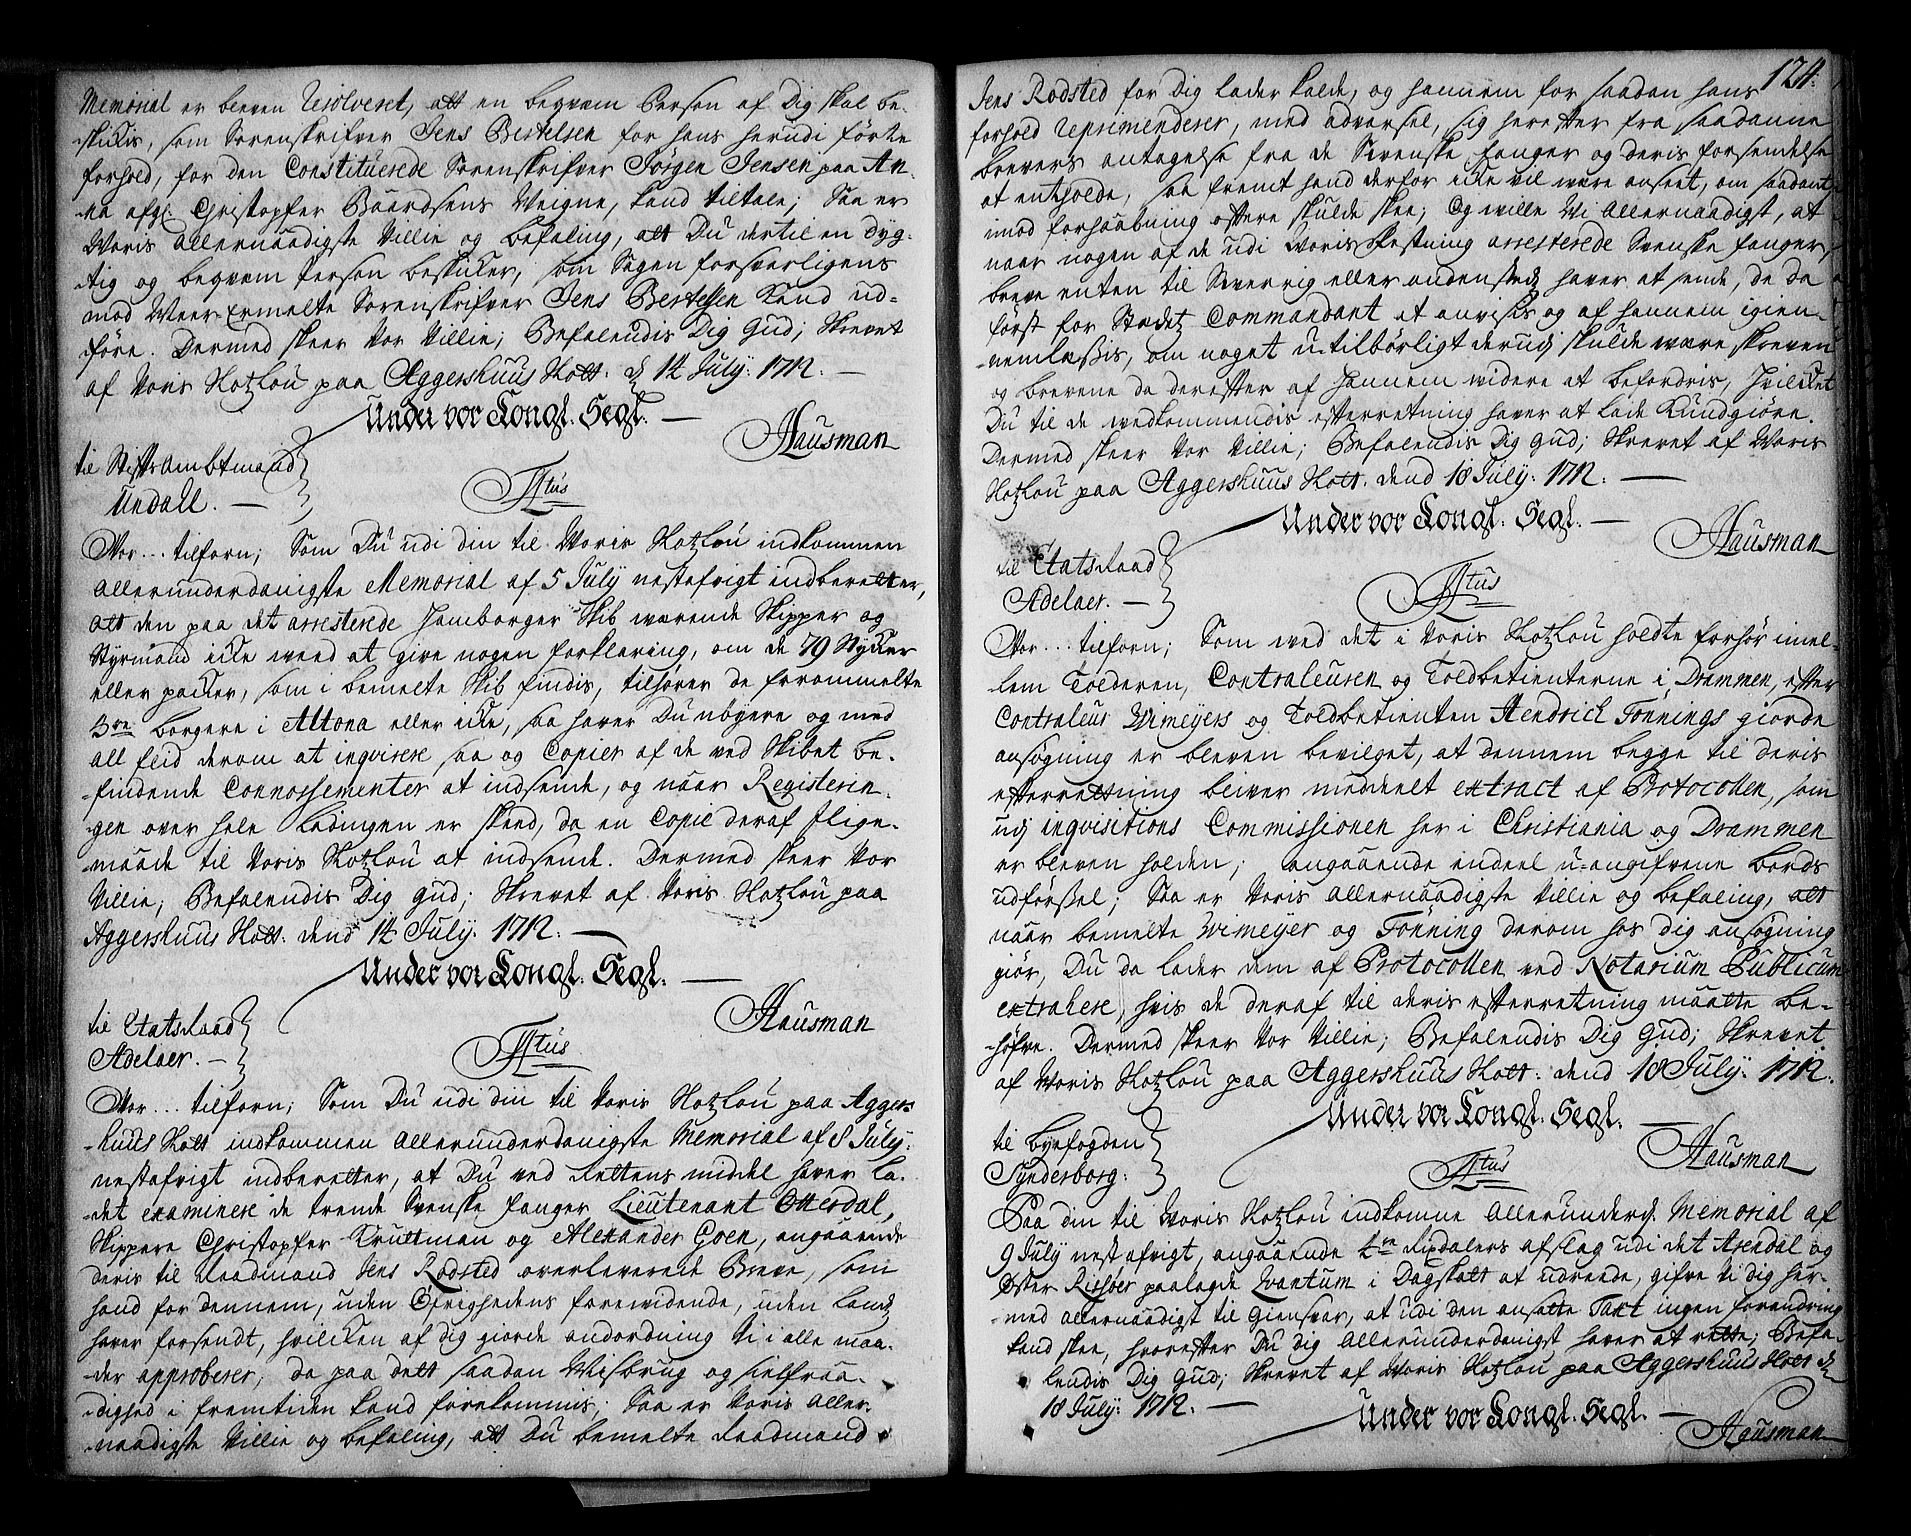 Memorial er bleven Resolveret, att en beqvem Person af Dig skal be-
skikis, som Sorenskrifver Jens Bertelsen for hans herudi førte
forhold, for den Constituerede Sorenskrifver Jørgen Jensen paa An-
na afgl. Christopfer Baardsens Veigne, kand tiltale; Saa er
Woris allernaadigste Villie og befaling, att Du dertil en dyg-
tig og beqvem Person beskicker, som Sagen forsvarligens
mod Meer Ermelte Sorenskrifver Jens Bertelsen kand ud-
føre. Dermed skeer Vor Villie; Befalendis Dig Gud; Skrevet
af Voris Slotzlou paa Aggershuus Slott. d 14 July. 1712.
Under vor Kongl. Segl.
Hausman
til Stiftsambtmand
Undall.
Attus
Vor... tilforn; Som Du udi din til Voris Slotzlou indkommen
allerunderdanigste Memorial af 5 July nestafvigt indberetter,
att den paa det arresterede Hamborger Skib værende Skipper og
Styrmand icke weed at give nogen forklaring, om de 79 Stycker
eller packer, som i bemelte Skib findis, tilhører de forommelte
3re borgere i Altona eller icke, saa haver Du nøyere og med
all flid derom at inqvirere saa og Copier af de ved Skibet be-
findende Connossementer at indsende, og naar Registerin-
gen over hele Ladingen er skeed, da en Copie deraf llige-
maade til Voris Slotzlou at indsende. Dermed skeer Vor
Villie; Befalendis Dig Gud; Skrevet af Voris Slotzlou paa
Aggershuus Slott. dend 14 July. 1712.
Under vor Kongl. Segl.
Hausman
til EtatsRaad
Adelaer.
Attus
Vor... tilforn; Som Du udi din til Voris Slotzlou paa Aggers-
huus Slott indkommen allerunderdanigste Memorial af 8 July.
nestafvigt indberetter, at Du ved Rettens middel haver la-
det examinere de trende Svenske fanger Lieutenant Otterdal,
Skippere Christopfer Kruttman og Alexander Goen, angaaende
deris til Raadmand Jens Rodsted overleverede Breve, som
hand for dennem, uden Øfrighedens forevidende, uden Landz
haver forsendt, hvilcken af dig giorde andordning Vi i alle maa-
der approberer, da paa dett saadan Misbrug og sielfraa-
dighed i fremtiden kand forekommis; Saa er Voris aller-
naadigste Villie og befaling, att Du bemelte Raadmand
124.
Jens Rodsted for dig lader kalde, og hannem for saadan hans
forhold Reprimenderer, med advarsel, sig herefter fra saadanne
brevers antagelse fra de Svenske fanger og deris forsendelse
at entholde, saa fremt hand derfor icke vil være anseet, om saadant
imod forhaabning oftere skulde skee; Og wille Vi Allernaadigst, at
naar nogen af de udi Voris Festning arresterede Svenske fanger
breve enten til Sverrig eller andenstedz haver at sende, de da
først for Stædetz Commandant at anvisis og af hannem igien-
nemlæsis, om noget u-tilbørligt derudj skulde være skreven
og brevene da derefter af hannem widere at befordris, hvilcket
Du til de wedkommendis efterretning haver at lade kundgiøre.
Dermed skeer Vor Villie; Befalendis Dig Gud; Skrevet af Woris
Slotzlou paa Aggershuus Slott. dend 18 July. 1712.
Under vor Kongl. Segl.
Hausman
til EtatsRaad
Adelaer.
Attus
Vor... tilforn; Som ved det i Voris Slotzlou holdte forhør imel-
lem Tolderen, Contraleuren og Toldbetienterne i Drammen, efter
Contraleur Wimeyers og Toldbetienten Hendrich Tønnings giorde
ansøgning er bleven bevilget, at dennem begge til deris
efterretning bliver meddelet extract af Protocollen, som
udj inqvisitions Commissionen her i Christiania og Drammen
er bleven holden; angaaende endeel u-angifvene bords
udførsel; Saa er Voris allernaadigste Villie og befaling, att
naar bemelte Wimeyer og Tønning derom hos dig ansøgning
giør, Du da lader dem af Protocollen ved Notarium Publicum
extrahere, hvis de deraf til deris efterretning maatte be-
høfve. Dermed skeer Vor Villie; Befalendis Dig Gud; Skrevet
af Woris Slotzlou paa Aggershuus Slott. dend 18 July. 1712.
Under vor Kongl. Segl.
Hausman
til byefogden
Synderborg.
Attus
Paa din til Woris Slotzlou indkomne allerunderd. Memorial af
9 July nestafvigt, angaaende Rixdalers afslag udi det Arendal og
Øster Riisøer paalagde Qvantum i Dagskatt at udreede, gifve Vi dig her-
med allernaadigst til Giensvar, at udi den ansatte Taxt ingen forandring
kand skee, hvorefter Du dig allerunderdanigst haver at rette; Befa-
lendis Dig Gud; Skrevet af Woris Slotzlou paa Aggershuus Slott d
18 July. 1712.
Under vor Kongl. Segl.
Hausman